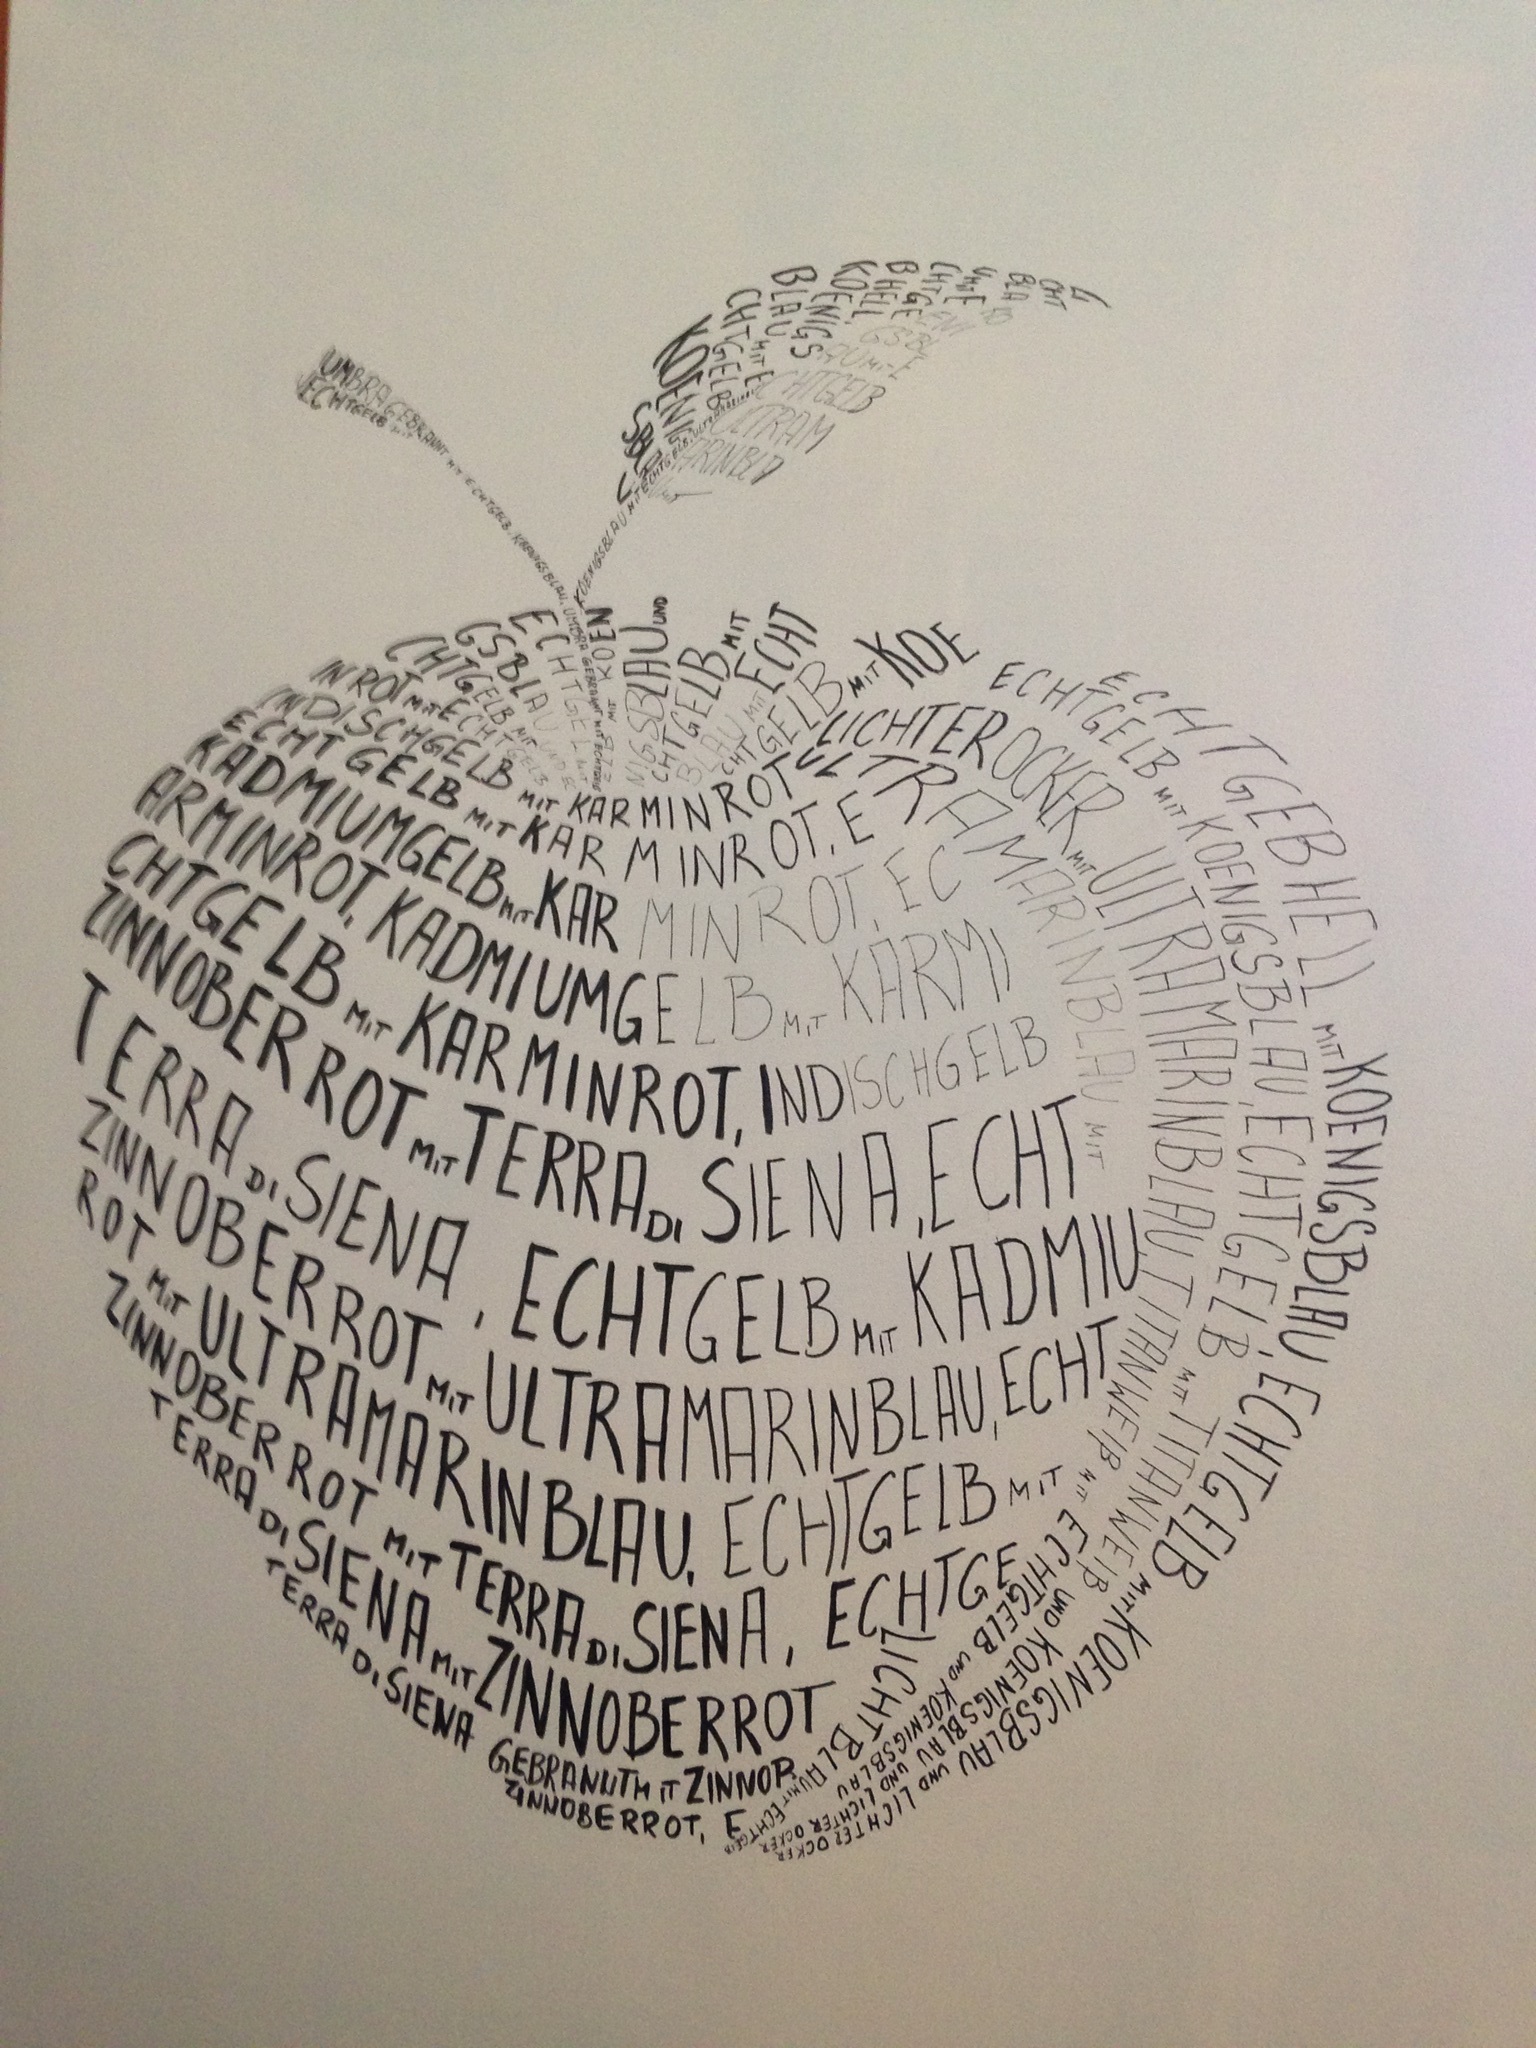 UMBRA GEBRANNT MIT ECHTGELB, KOENIGSBLAU, UMBRA GEBRANNT MIT ECHTGELB
ECHTGELB MIT
KOENIGSBLAU MIT ECHTGELB, ULTRAMARIN
KOENIG
SBLA
CHTGELB
BLAU MIT E
KOENIGS
B HELL
CHTGE
CHTGELB
ULTRAM
ARINBLA
ECHTGEL
GSBLAU UND E
CHTGELB MIT
INROT MIT ECHTGELB
KOEN
NIGSBLAU UND
CHTGELB MIT
BLAU MIT ECHT
CHTGELB MIT KOE
INDISCHGELB MIT KARMINROT
ECHTGELB MIT KARMINROT, E
KADMIUMGELB MIT KARMINROT, EC
ARMINROT, KADMIUMGELB MIT KARMI
CHTGELB MIT KARMINROT, INDISCHGELB
ZINNOBERROT MIT TERRA DI SIENA, ECHT
TERRA DI SIENA, ECHTGELB MIT KADMIU
ZINNOBERROT MIT ULTRAMARINBLAU, ECHT
ROT MIT ULTRAMARINBLAU, ECHTGELB MIT
ZINNOBERROT MIT TERRA DI SIENA, ECHTGE
TERRA DI SIENA MIT ZINNOBERROT
TERRA DI SIENA GEBRANNT MIT ZINNOB
ZINNOBERROT, E
ULTRAMARINBLAU MIT
LICHTER OCKER MIT ULTRAMARINBLAU, TITANWEIß MIT ECHTGELB UND KOENIGSBLAU
ECHTGELB MIT KOENIGSBLAU, ECHTGELB MIT TITANWEIß MIT KOENIGSBLAU UND LICHTER OCKER
ECHTGEB HELL MIT KOENIGSBLAU, ECHTGELB
ECHTGELB UND KOENIGSBLAU UND LICHTER OCKER
LICHTBLAU MIT ECHTGELB